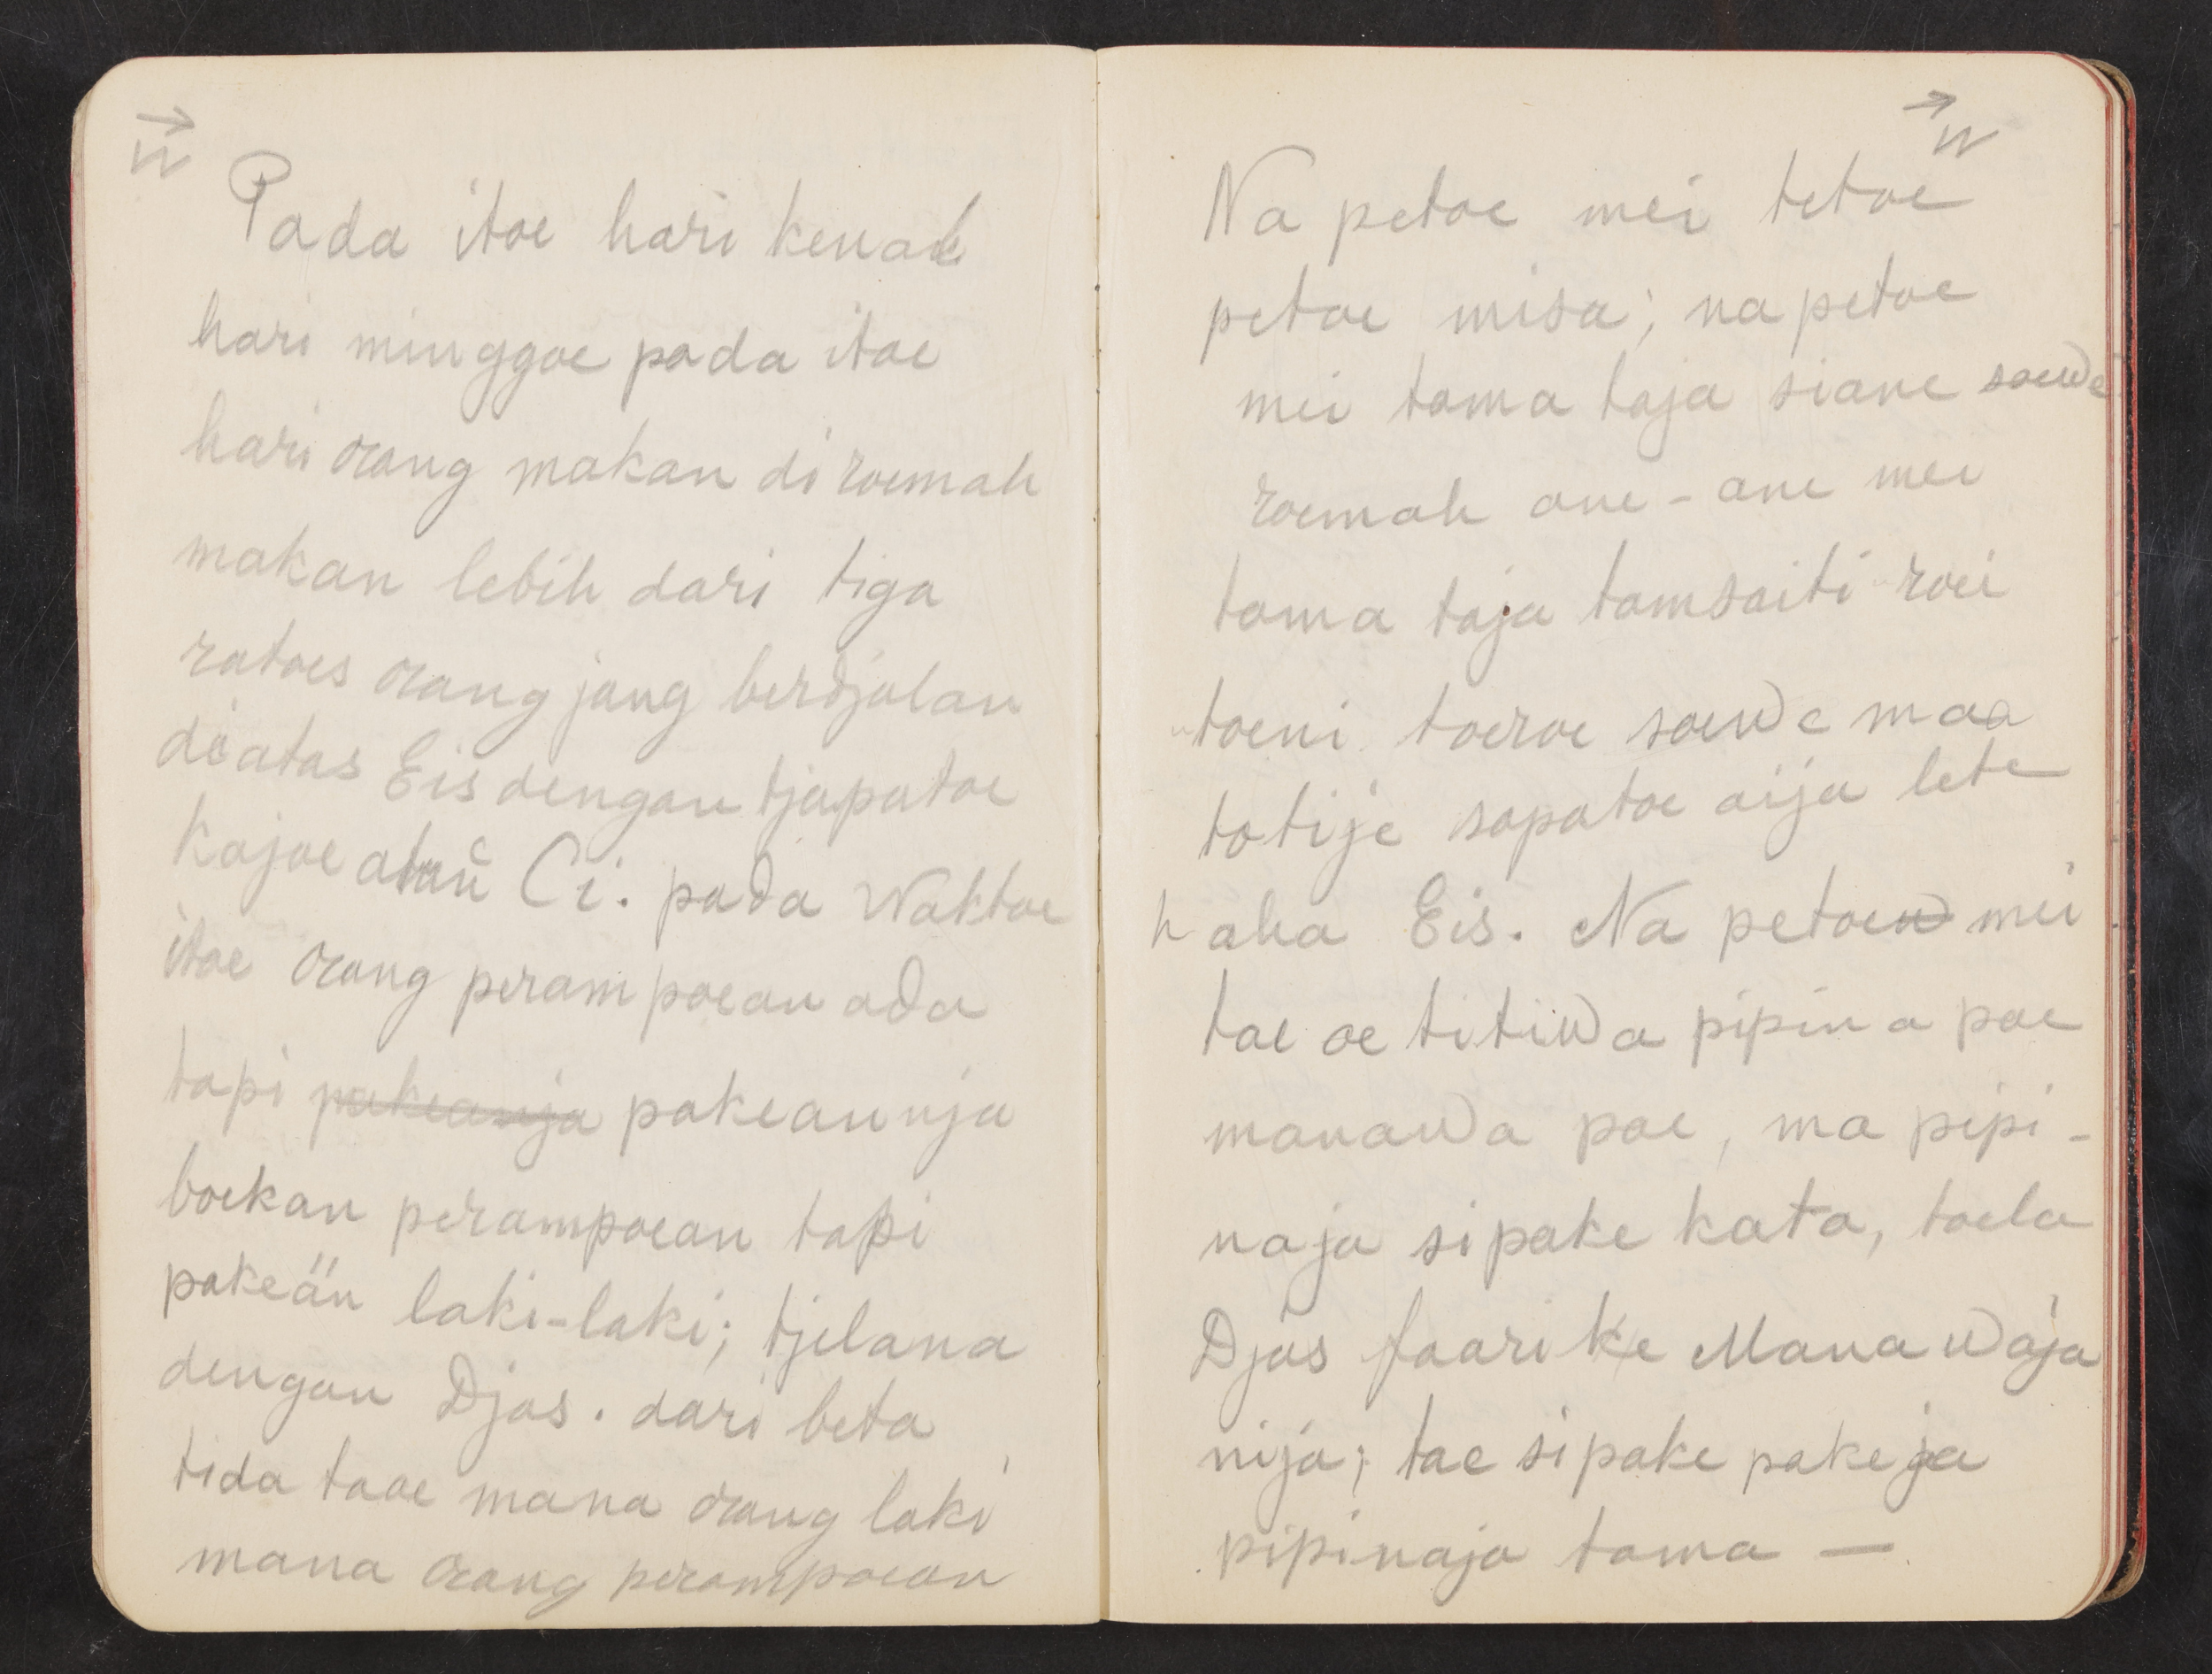 Pada itoe hari kenal
hari minggoe pada itoe
hari orang makan di roemah
makan lebih dari tiga
ratoes orang jang berdjalan
diatas Eis dengan tjapatoe
Kajoe atau Ci. pada Waktoe
itoe orang perampoean ada
tapi pakeanja pakeannja
boekan perampoean tapi
pakeän laki-laki; tjelana
dengan Djas. dari beta
tida taoe mana orang laki
mana orang perampoean
Na petoe mei tetoe
petoe misa; na petoe
mei tama taja siane soewe
roemah ane-ane mei
tama taja tamsaiti roei
toeni toeroe soewe maa
totije sapatoe aija lete
haha Eis. Na petoew mei
toe oe titiwa pipina poe
manawa poe, ma pipi-
naja si pake kata, toela
Djas faari ke Manawaja
nija; tae si pake pakeja
pipinaja tama —